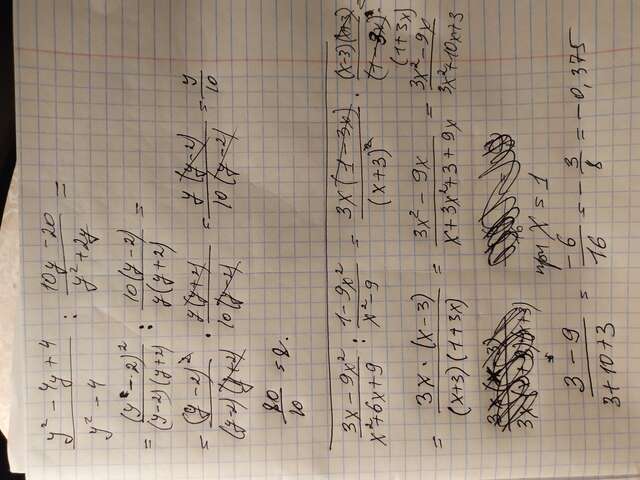 y² - 4y + 4 / y² - 4 : 10y - 20 / y² + 2y =
= (y - 2)² / (y-2)(y+2) : 10(y-2) / y(y+2) =
= (y-2)² / (y-2)(y+2) · y(y+2) / 10(y-2) = y(y-2) / 10(y-2) = y / 10
20 / 10 = 2.
3x - 9x² / x² + 6x + 9 : 1 - 9x² / x² - 9 = 3x(1-3x) / (x+3)² · (x-3)(x+3) / (1-3x)(1+3x)
= 3x · (x-3) / (x+3)(1+3x) = 3x² - 9x / x + 3x² + 3 + 9x = 3x² - 9x / 3x² + 10x + 3
при x = 1
3 - 9 / 3 + 10 + 3 = -6 / 16 = - 3 / 8 = -0,375